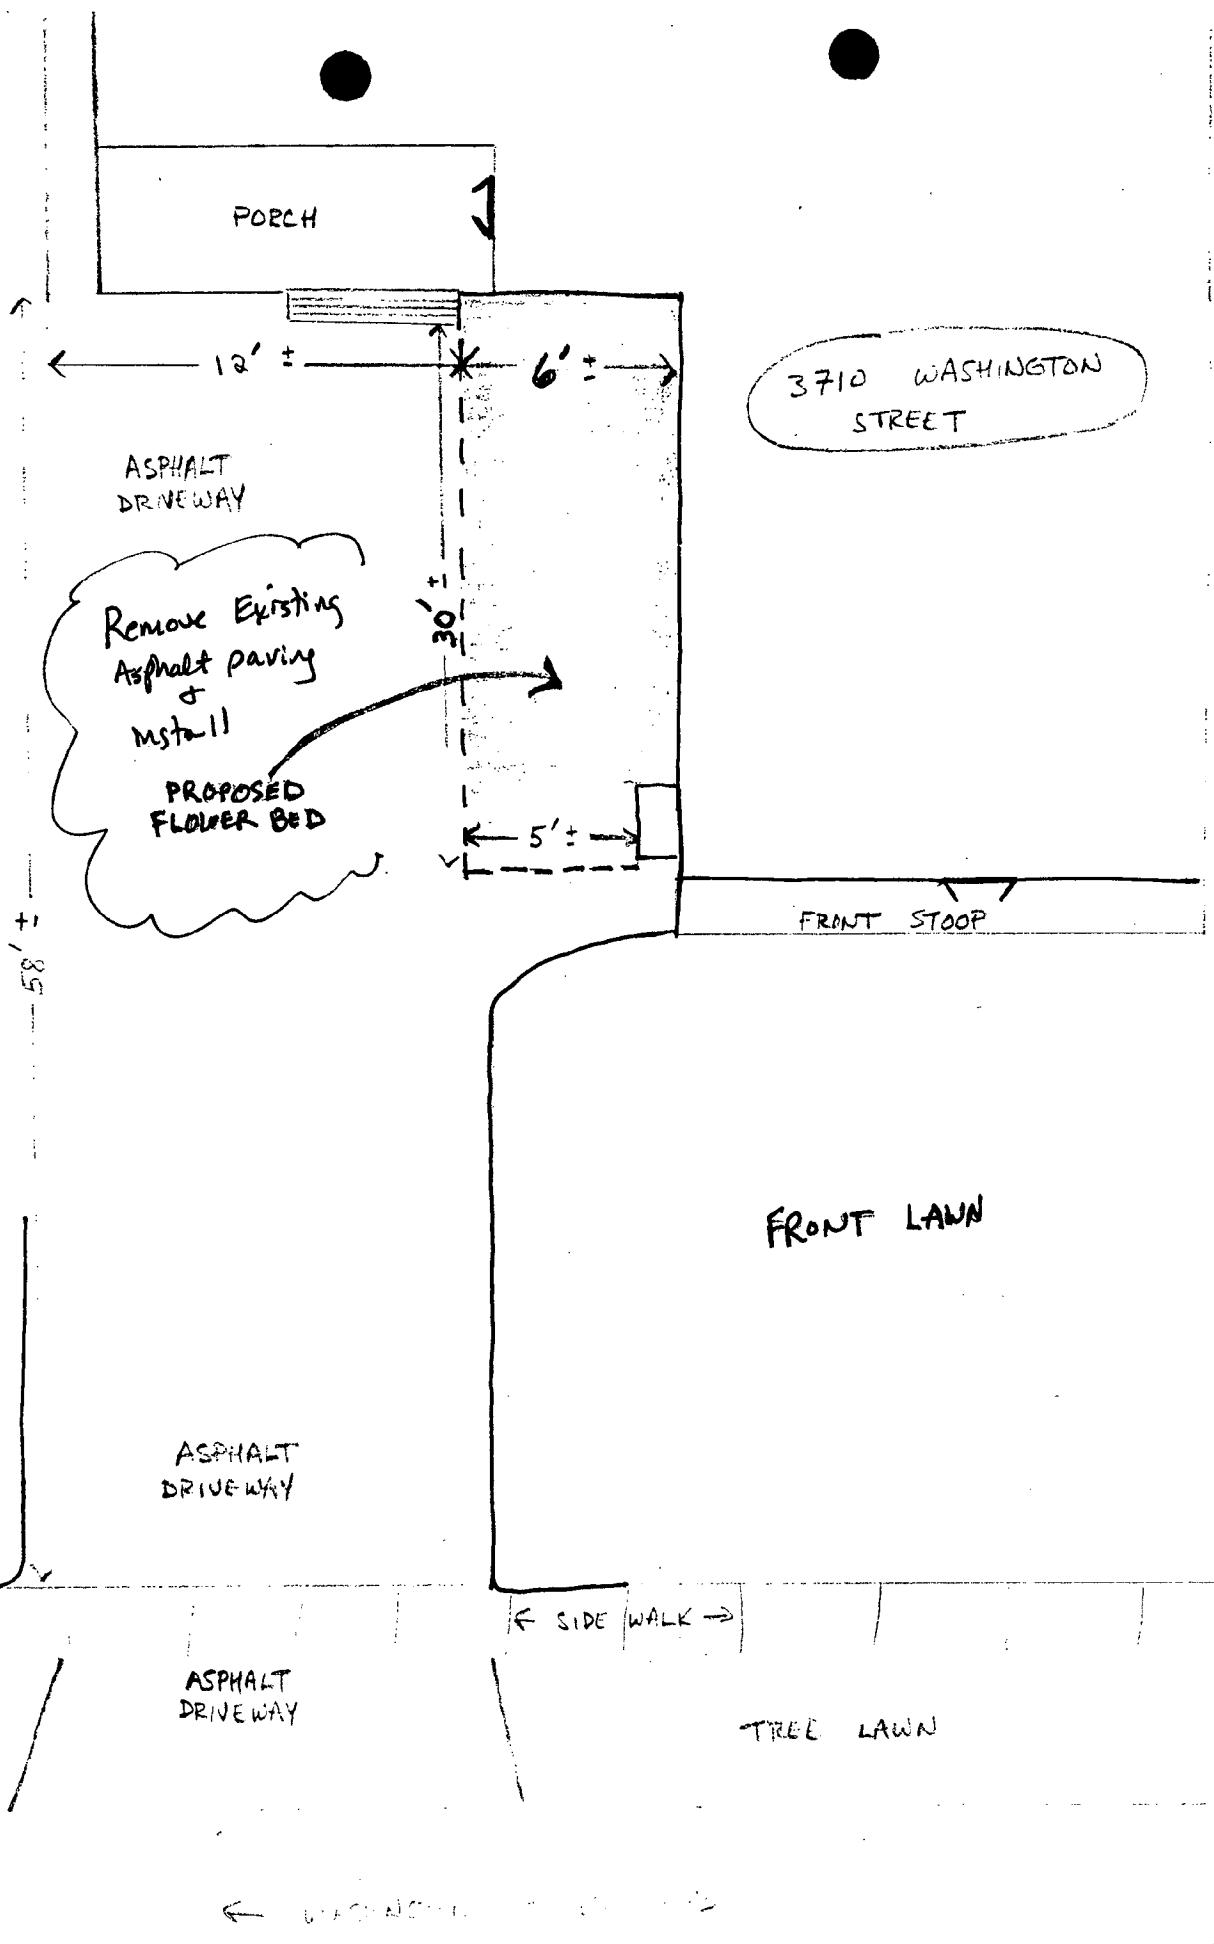 PORCH
12' ±
6' ±
3710 WASHINGTON
STREET
ASPHALT
DRIVEWAY
30' ±
Remove Existing
Asphalt paving
&
install
PROPOSED
FLOWER BED
5' ±
58' ±
FRONT STOOP
FRONT LAWN
ASPHALT
DRIVEWAY
← SIDE WALK →
ASPHALT
DRIVEWAY
TREE LAWN
←